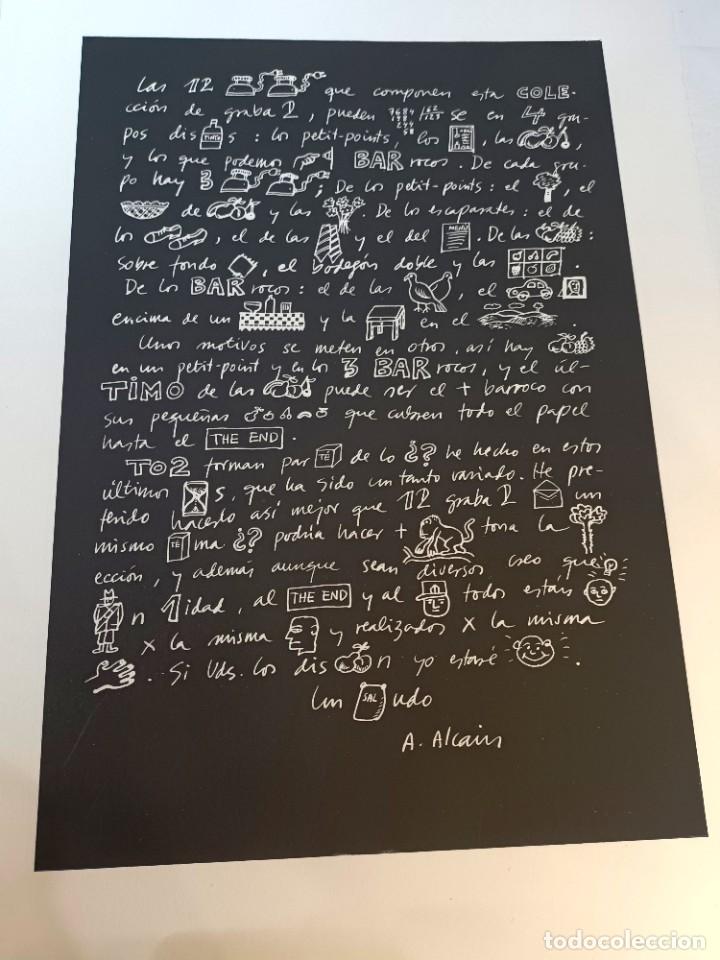 Las 12 que componen esta COLE-
cción de graba 2, pueden se en 4 gru-
pos dis TINTO s: los petit-points, los , las ,
y los que podemos BAR rocos. De cada gru-
po hay 3 ; De los petit-points: el , el
de y las . De los escaparates: el de
los , el de las y el del MENÚ . De las :
sobre fondo , el bodegón doble y las .
De los BAR rocos: el de las , el ,
encima de un y la en el .
Unos motivos se meten en otros, así hay
en un petit-point y en los 3 BAR rocos, y el úl-
TIMO de las puede ser el + barroco con
sus pequeñas que cubren todo el papel
hasta el THE END .
TO2 forman par TE de lo ¿? he hecho en estos
últimos s, que ha sido un tanto variado. He pre-
ferido hacerlo así mejor que 12 graba 2 un
mismo TE ma ¿? podría hacer + tona la
ección, y además aunque sean diversos creo que
n 1idad, al THE END y al todos están
x la misma y realizados x la misma
. Si Uds. los dis n yo estaré .
Un SAL udo
A. Alcain
todocoleccion